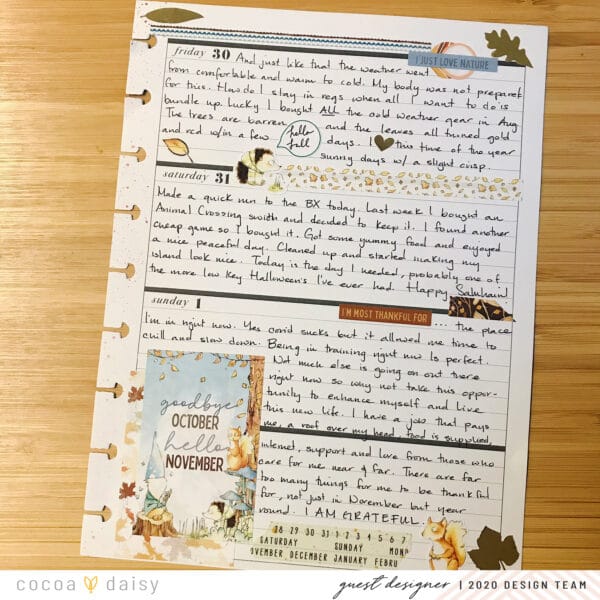 friday 30 And just like that the weather went
I JUST LOVE NATURE
from comfortable and warm to cold. My body was not prepared
for this. How do I stay in regs when all I want to do is
bundle up. Lucky I bought All the cold weather gear in Aug.
The trees are barren and the leaves all turned gold
hello fall
and red w/in a few days. I this time of the year
sunny days w/ a slight crisp.
saturday 31
Made a quick run to the BX today. Last week I bought an
Animal Crossing swith and decided to keep it. I found another
cheap game so I bought it. Got some yummy food and enjoyed
a nice peaceful day. Cleaned up and started making my
island look nice. Today is the day I needed, probably one of
the more low key Halloween's I've ever had. Happy Samhain!
sunday 1
I'M MOST THANKFUL FOR ... the place
I'm in right now. Yes covid sucks but it allowed me time to
chill and slow down. Being in training right now is perfect.
Not much else is going on out there
right now so why not take this oppor-
tunity to enhance myself and live
this new life. I have a job that pays
me, a roof over my head, food is supplied,
internet, support and love from those who
care for me near & far. There are far
too many things for me to be thankful
for, not just in November but year
round. I AM GRATEFUL.
goodbye
OCTOBER
hello
NOVEMBER
28 29 30 31 1 2 3 4 5 6 7
SATURDAY SUNDAY MON
OVEMBER DECEMBER JANUARY FEBRU
cocoa daisy
guest designer | 2020 DESIGN TEAM